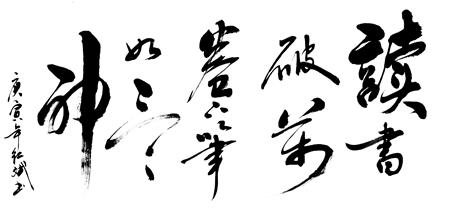 讀書
破萬
卷下筆
如有
神
庚寅年紅斌书